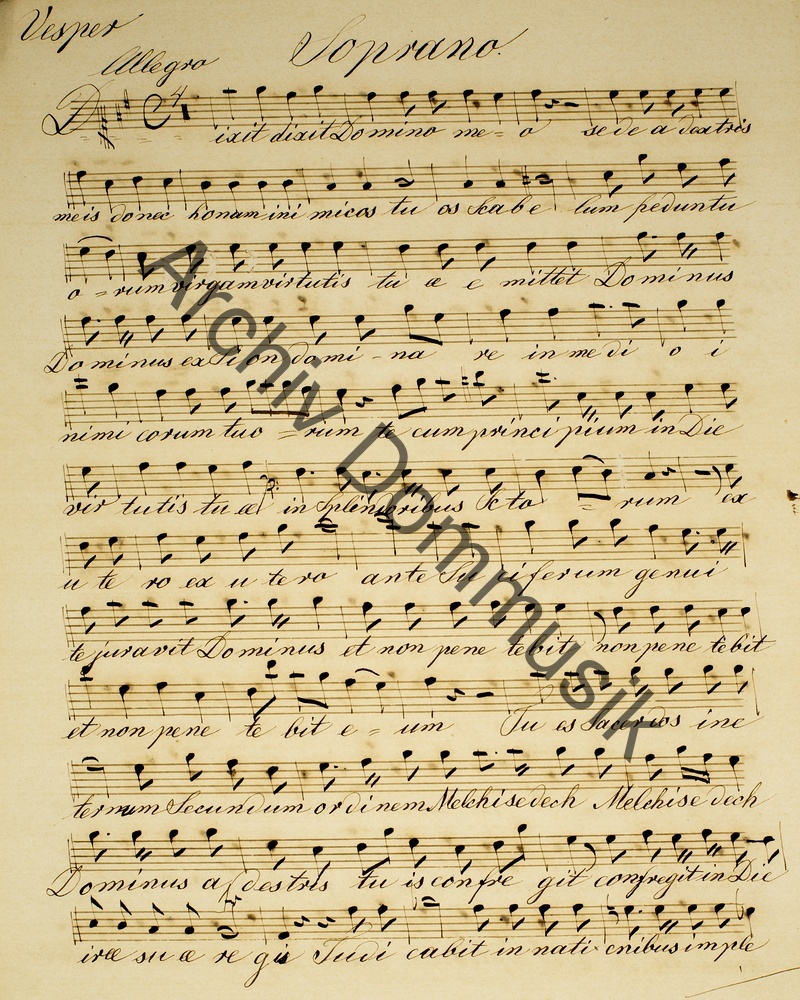 Vesper
Soprano.
Allegro
4
Dixit dixit Domino me = o sede a dextris
meis donec ponam ini micos tu os Scabe lum peduntu
o = rum virgam virtutis tu æ e mittet Dominus
Dominus ex Sion domi - na re in me di o i
nimi corum tuo = rum te cum principium in Die
vir tutis tu æ in Splendoribus Scto = rum ex
u te ro ex u tero ante Lu ciferum genui
te juravit Dominus et non pene tebit non pene tebit
et non pene te bit e = um Tu es Sacerdos ine
ternum Secundum ordinem Melchisedech Melchise dech
Dominus a destris tu is confre git confregit in Die
iræ su æ re gis Judi cabit in nati onibus imple
Archiv Dommusik